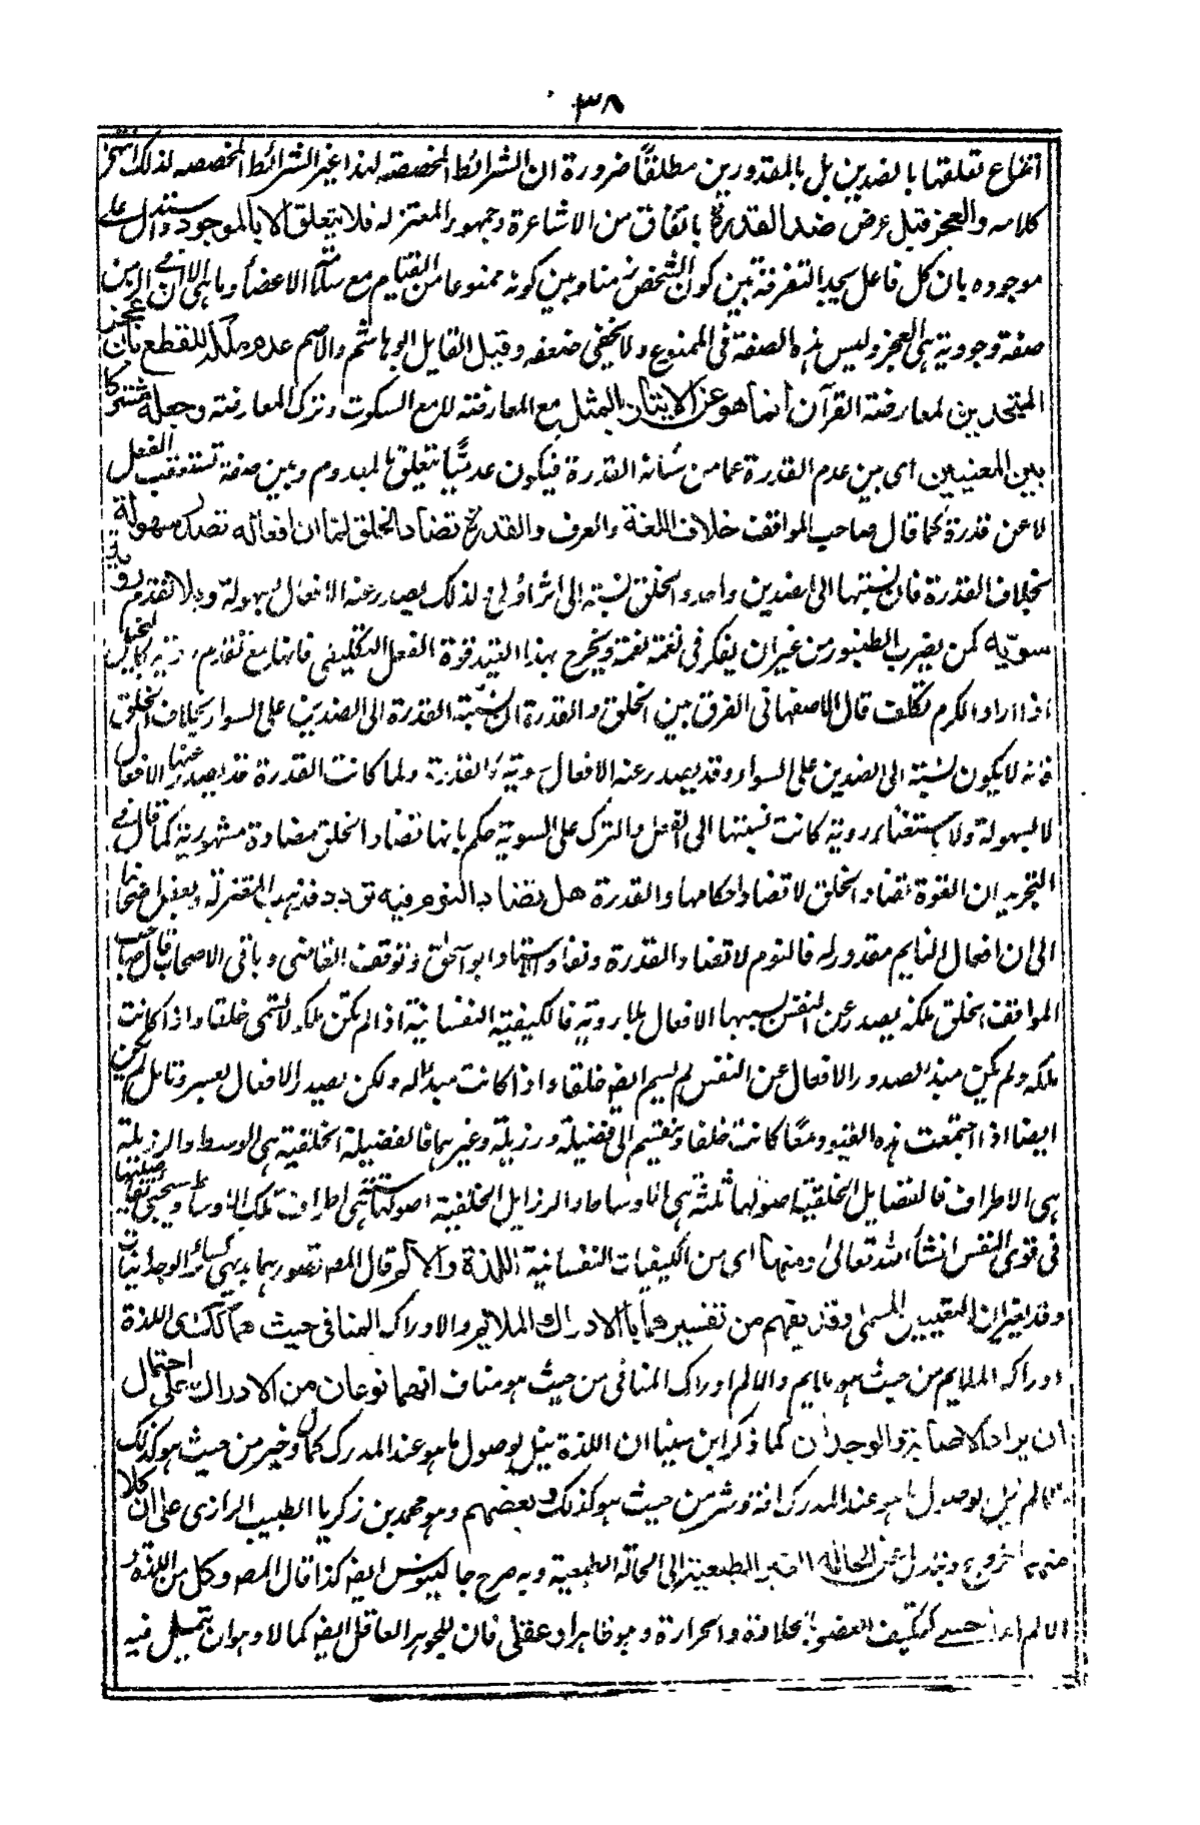 ٣٨
امتناع تعلقها بالضدين بل بالمقدورين مطلقًا ضرورة ان الشرائط المخصصة لهذا غير الشرائط المخصصه لذلك انتهى
كلامه والعجز قيل عرض ضد القدرة باتفاق من الاشاعرة وجمهور المعتزله فلا يتعلق الا بالموجود واستدل على
موجوده بان كل فاعل يجد التفرقة بين كون الشخص زمنا وبين كونه ممنوعا من القيام مع سلامة الاعضأ وما هى الا ان في الزمن
صفة وجودية هى العجز وليس هذه الصفة فى الممنوع ولا يخفى ضعفه وقيل القايل ابو هاشم والاصم عدم ملكة للقطع بان عجز
المتحدين لمعارضة القرآن انما هو عن الاتيان بالمثل مع المعارضته لا مع السكوت وترك المعارضته وجعله مشتركا
بين المعنيين اى بين عدم القدرة عما من شأنه القدرة فيكون عدميًّا يتعلق بالمعدوم وبين صفة تستعقب الفعل
لا عن قدرة كما قال صاحب المواقف خلاف اللغة والعرف والقدرة تضاد الخلق لما ان افعاله تصدر بسهولة
بخلاف القدرة فان نسبتها الى الضدين واحد والخلق نسبته الى اثر اولى ولذلك يصدر عنه الافعال بسهولة وبلا تقدم روية
سويه كمن يضرب الطنبور من غير ان يفكر فى نغمة نغمة ويخرج بهذا القيد قوة الفعل التكليفى فانها مع تقدم روية كالبخيل
اذا اراد الكرم تكلف قال الاصفهانى الفرق بين الخلق والقدرة ان نسبة القدرة الى الضدين على السواء بخلاف الخلق
فانه لا يكون نسبته الى الضدين على السواء وقد يصدر عنه الافعال القدرة ولما كانت القدرة قد يصدر عنها الافعال
لا لسهولة ولا باستغناء روية كانت نسبتها الى الفعل والترك على السوية حكم بانها تضاد الخلق مضادة مشهورية كما قال فى
التجريد ان القوة تضاد الخلق لا تضاد احكامها والقدرة هل يضاد النوم فيه تردد فذهب المعتزلة وبعض اصحابنا
الى ان افعال النايم مقدور له فالنوم لا تضاد القدرة ونفاه الاستاد ابو اسحٰق وتوقف القاضى وباقى الاصحاب قال صاحب
المواقف الخلق ملكة يصدر عن النفس بسببها الافعال بلا روية فالكيفية النفسانية اذا لم تكن ملكة لا تسمى خلقا واذا كانت
ملكة ولم يكن مبدأ لصدور الافعال عن النفس لم يسم ايضا خلقا واذا كانت مبدأ له ولكن يصدر الافعال بعسر وتامل لم يكن
ايضا اذا اجتمعت هذه القيود معًا كانت خلقا وتنقسم الى فضيلة ورزيلة وغيرهما فالفضيلة الخلقية هى الوسط والرزيلة
هى الاطراف فالفضايل الخلقية اصولها ثلثة هى الاوساط والرزايل الخلقية اصولها ستة هى اطراف تلك الاوساط وسيجئ تفاصيلها
فى قوى النفس انشأ الله تعالى ومنها اى من الكيفيات النفسانية اللذة والالم قال المصه تصورهما بديهى كسائر الوجدانيات
وقد يفسران المسمى وقد يفهم من تفسيرهما بالادراك الملائم والادراك المنافى حيث هما كذلك اى اللذة
ادراك الملايم من حيث هو ملايم والالم ادراك المنافى من حيث هو مناف انهما نوعان من الادراك على احتمال
ان يراد بالاصابة والوجدان كما ذكر ابن سينا ان اللذة نيل بوصول ما هو عند المدرك كمال وخير من حيث هو كذلك
والالم نيل بوصول ما هو عند المدرك افة وشر من حيث هو كذلك وبعضهم وهو محمد بن زكريا الطبيب الرازى على ان كلا
منهما خروج وتبدل عن الحالة الغير الطبيعية الى الحالة الطبيعية وبه صرح جالينوس ايضا كذا قال المصه وكل من اللذة و
الالم اما حسى كتكيف العضو بالحلاوة والحرارة وهو ظاهر او عقلى فان للجوهر العاقل ايضا كمالا وهو ان يتمثل فيه